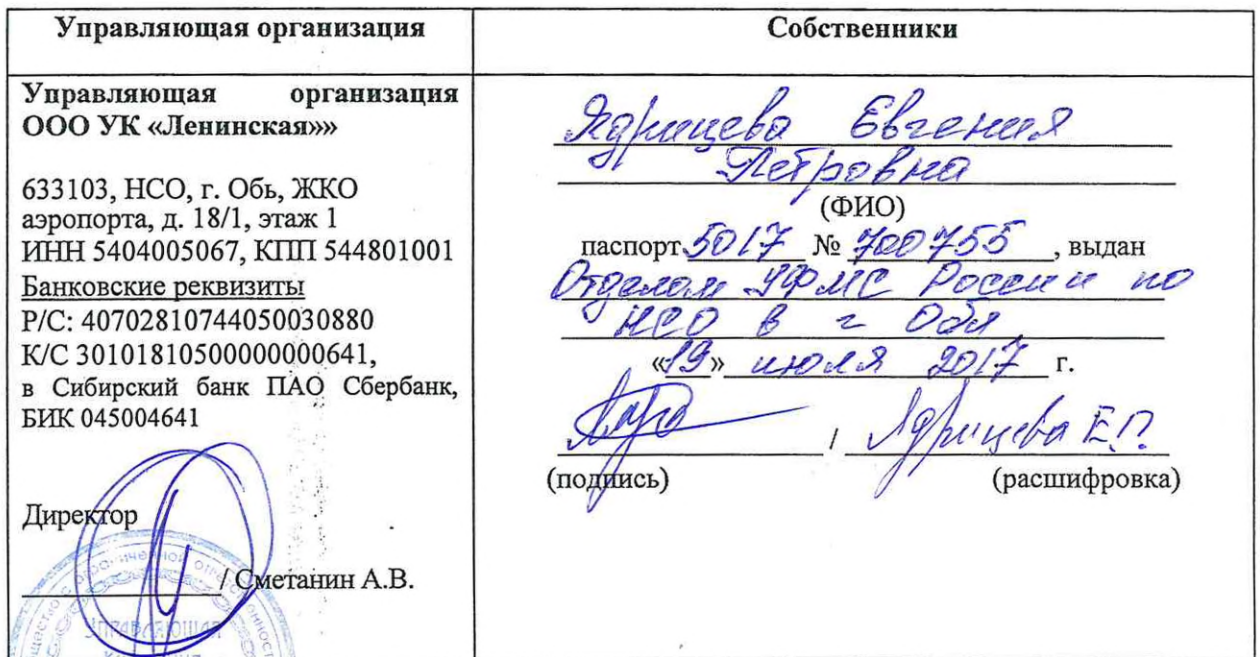 Управляющая организация
Собственники
Управляющая организация
ООО УК «Ленинская»»
633103, НСО, г. Обь, ЖКО
аэропорта, д. 18/1, этаж 1
ИНН 5404005067, КПП 544801001
Банковские реквизиты
Р/С: 40702810744050030880
К/С 30101810500000000641,
в Сибирский банк ПАО Сбербанк,
БИК 045004641
Директор
/ Сметанин А.В.
Ядрицева Евгения
Петровна
(ФИО)
паспорт 5017 № 700755, выдан
Отделом УФМС России по
НСО в г Оби
«19» июля 2017 г.
/ Ядрицева Е.П.
(подпись) (расшифровка)
Управляющая